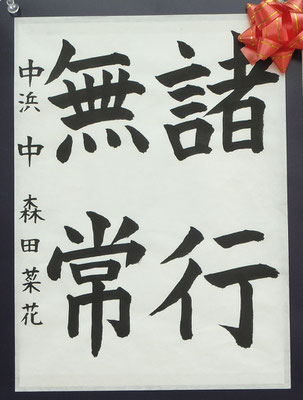 諸行
無常
中浜中 森田菜花